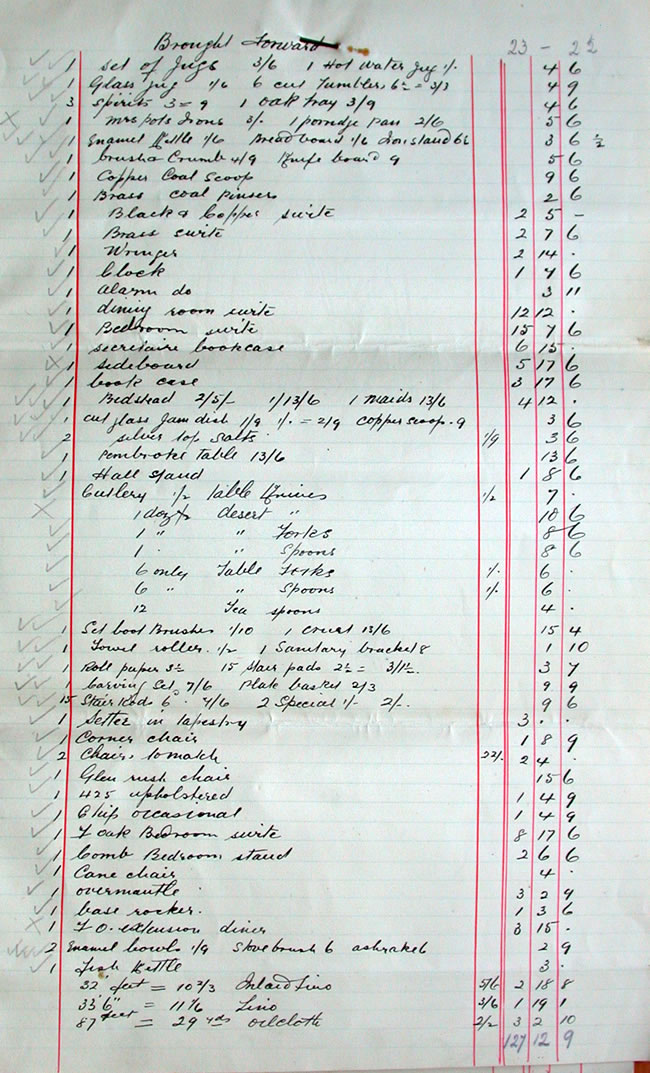 Brought Forward 23 - 2½
1 set of Jugs 3/6 1 Hot Water Jug 1/- 4 6
1 Glass jug 1/6 6 cut Tumblers 6½ = 3/3 4 9
3 Spirits 3 = 9 1 oak Tray 3/9 4 6
1 Mrs Pots Irons 3/- 1 porridge Pan 2/6 5 6
1 Enamel Kettle 1/6 Bread board 1/6 Iron stand 6½ 3 6 ½
1 brush & Crumb 4/9 Knife board 9 5 6
1 Copper Coal Scoop 9 6
1 Brass coal Pinsers 2 6
1 Black & Copper suite 2 5 -
1 Brass suite 2 7 6
1 Wringer 2 14 .
1 Clock 1 7 6
1 Alarm do 3 11
1 dining room suite 12 12 .
1 Bedroom suite 15 7 6
1 secretaire bookcase 6 15 .
1 sideboard 5 17 6
1 book case 3 17 6
1 Bedstead 2/5/- 1/13/6 1 maids 13/6 4 12 .
1 cut glass Jam dish 1/9 1/. = 2/9 copper scoop . 9 3 6
2 silver top salts 1/9 3 6
1 Pembroke Table 13/6 13 6
1 Hall stand 1 8 6
Cutlery ½ Table Knives 1/2 7 .
1 doz desert " 10 6
1 " " Forks 8 6
1 . " Spoons 8 6
6 only Table Forks 1/. 6 .
6 " " Spoons 1/. 6 .
12 Tea spoons 4 .
1 Set boot Brushes 1/10 1 cruet 13/6 15 4
1 Towel roller . 1/2 1 Sanitary bracket 8 1 10
1 Roll paper 5½ 15 stair pads 2½ = 3/1½ . 3 7
1 Carving Set 7/6 Plate basket 2/3 9 9
15 Stair Rods 6 . 7/6 2 Special 1/- 2/- . 9 6
1 Settee in tapestry 3 . .
1 Corner chair 1 8 9
2 Chairs to match 22/. 2 4 .
1 Glen rush chair 15 6
1 425 upholstered 1 4 9
1 Chip occasonal 1 4 9
1 F oak Bedroom suite 8 17 6
1 Comb Bedroom stand 2 6 6
1 Cane chair 4 .
1 overmantle 3 2 9
1 base rocker . 1 3 6
1 F O. extension diner 3 15 .
2 Enamel bowls 1/9 Stove brush 6 ashrake 6 2 9
1 Fish Kettle 3 .
32 feet = 10 2/3 Inlaid Lino 5/6 2 18 8
33'6" = 11 1/6 Lino 3/6 1 19 1
87 feet = 29 yds oilcloth 2/2 3 2 10
127 12 9